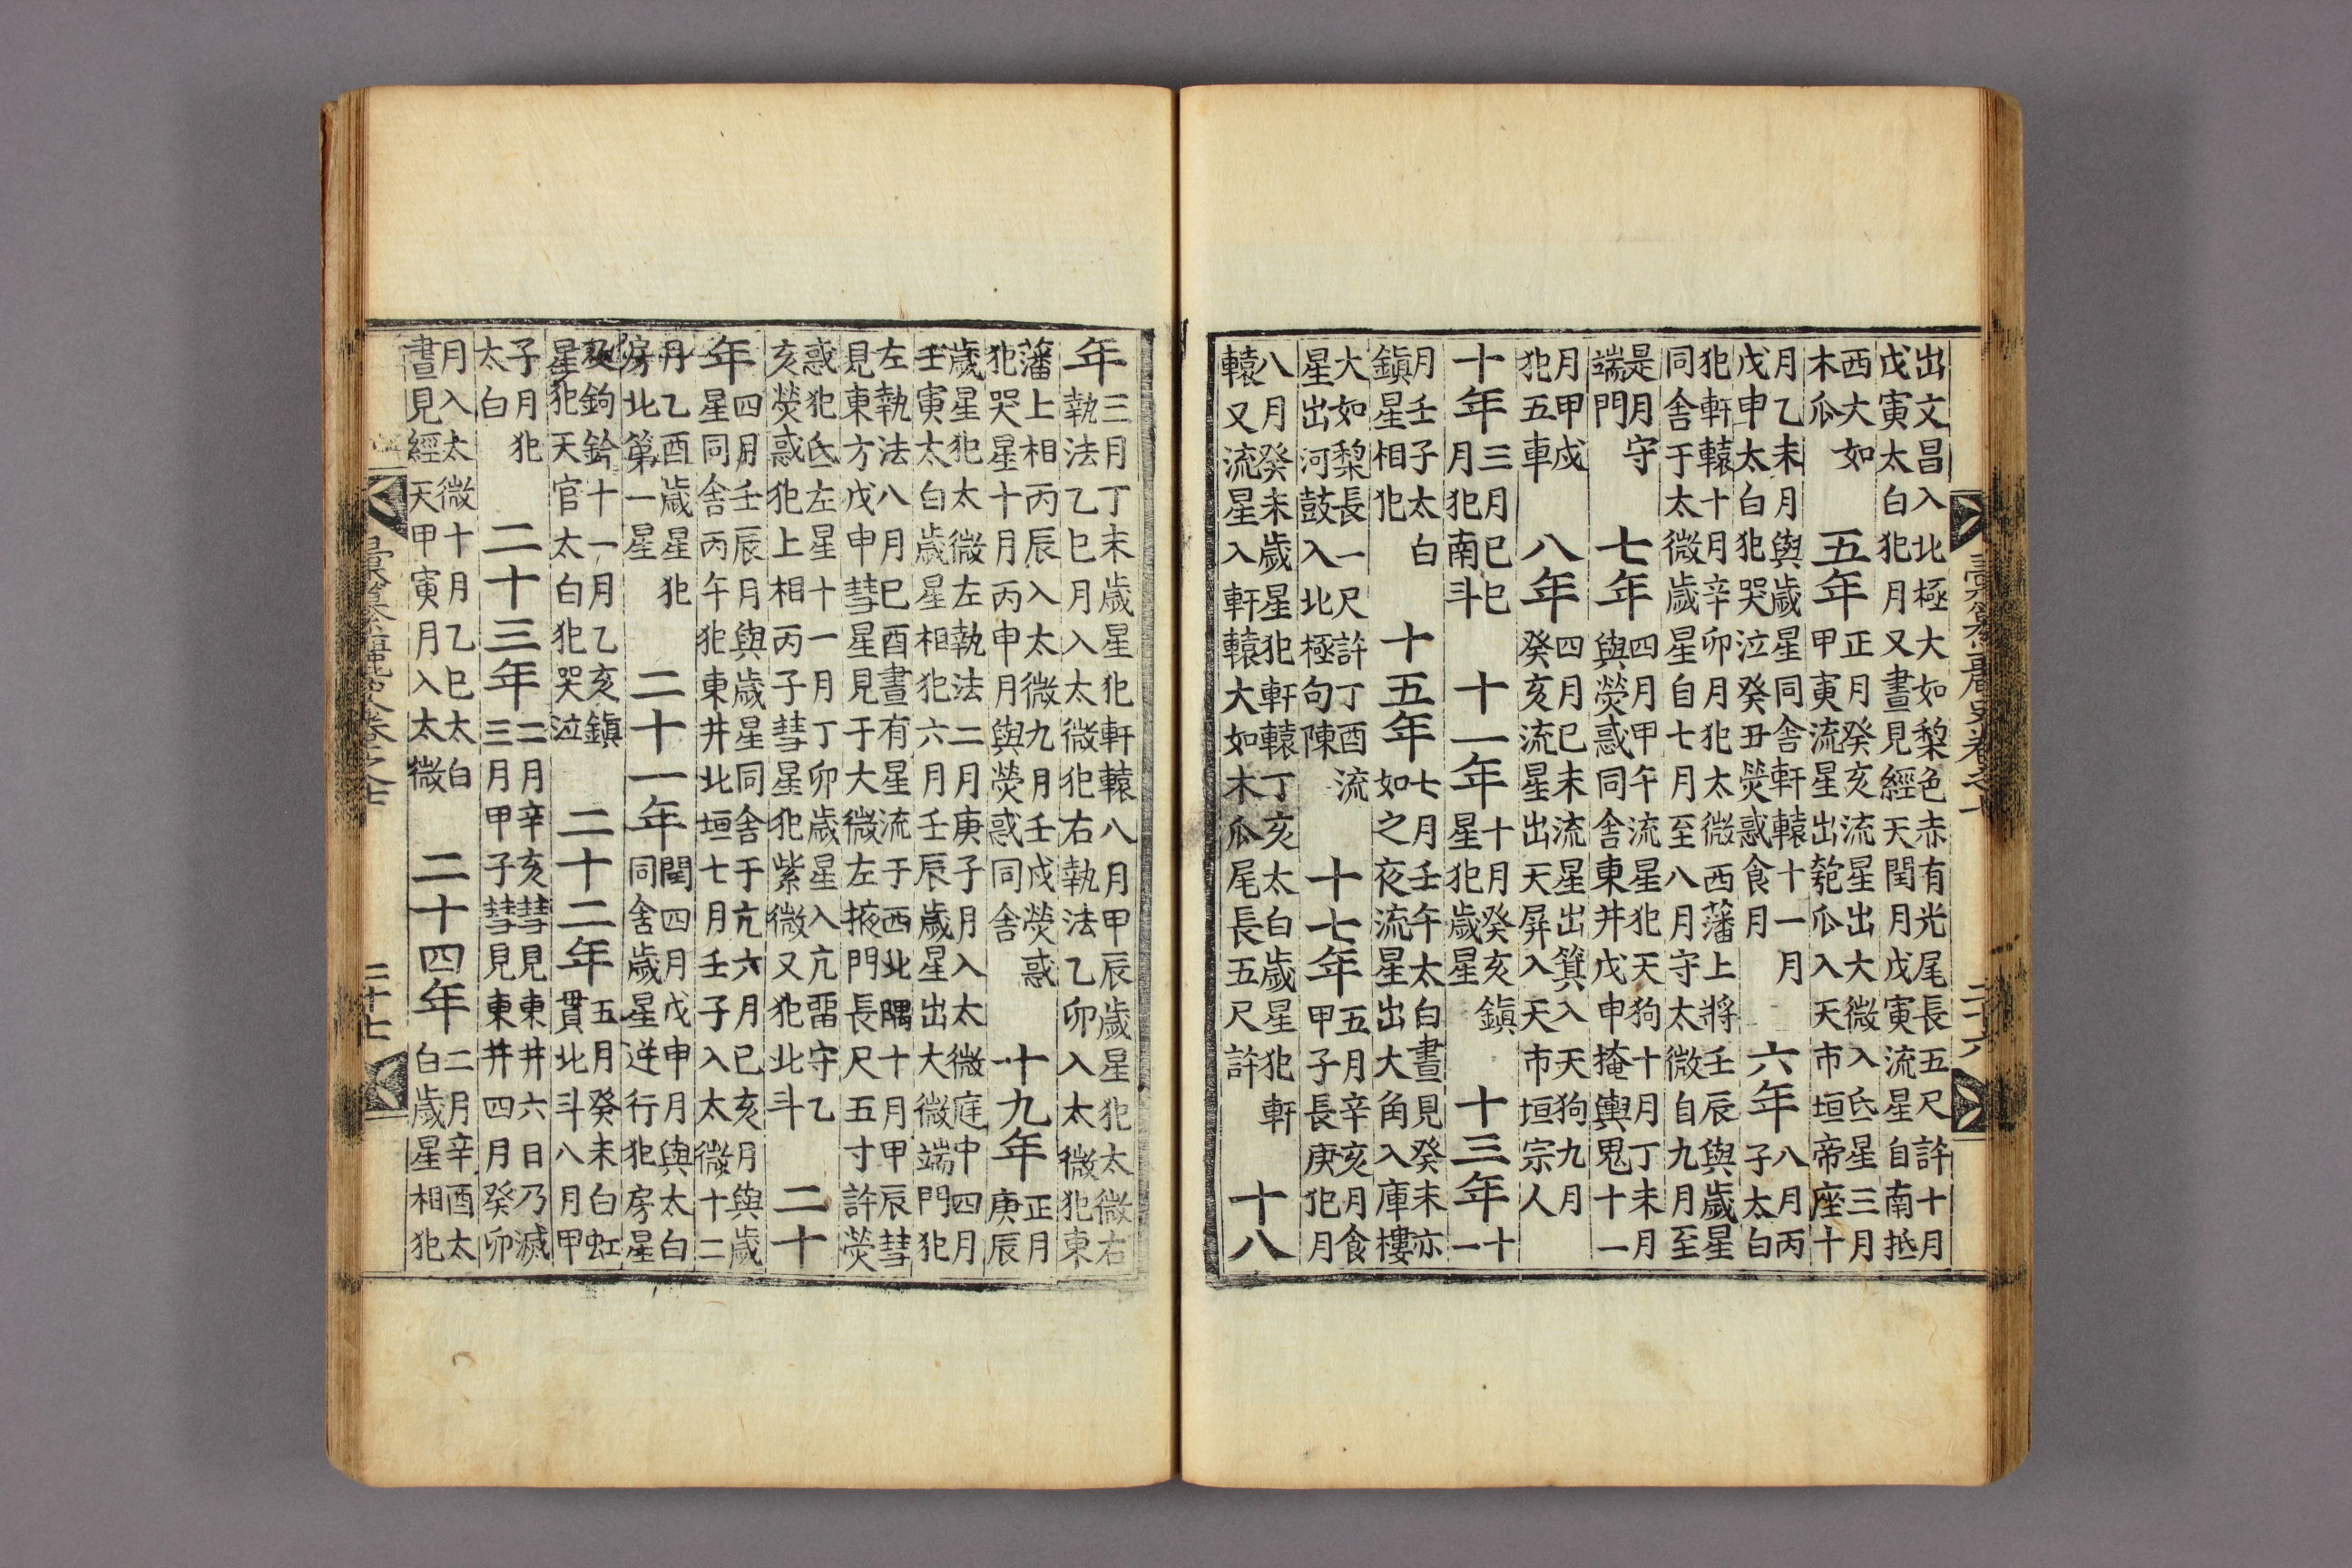 出文昌入北極大如梨色赤有光尾長五尺許十月
戊寅太白犯月又晝見經天閏月戊寅流星自南抵
西大如
木瓜
五年
正月癸亥流星出大微入氐星三月
甲寅流星出匏瓜入天市垣帝座十
月乙未月與歲星同舍軒轅十一月
戊申太白犯哭泣癸丑熒惑食月
六年
八月丙
子太白
犯軒轅十月辛卯月犯太微西藩上將壬辰與歲星
同舍于太微歲星自七月至八月守太微自九月至
是月守
端門
七年
四月甲午流星犯天狗十月丁未月
與熒惑同舍東井戊申掩輿鬼十一
月甲戌
犯五車
八年
四月己未流星出箕入天狗九月
癸亥流星出天屏入天市垣宗人
十年
三月己巳
月犯南斗
十一年
十月癸亥鎭
星犯歲星
十三年
十一
月壬子太白
鎭星相犯
十五年
七月壬午太白晝見癸未亦
如之夜流星出大角入庫樓
大如梨長一尺許丁酉流
星出河鼓入北極句陳
十七年
五月辛亥月食
甲子長庚犯月
八月癸未歲星犯軒轅丁亥太白歲星犯軒
轅又流星入軒轅大如木瓜尾長五尺許
十八
高麗史卷之十
二十六
年
三月丁未歲星犯軒轅八月甲辰歲星犯太微右
執法乙巳月入太微犯右執法乙卯入太微犯東
藩上相丙辰入太微九月壬戌熒惑
犯哭星十月丙申月與熒惑同舍
十九年
正月
庚辰
歲星犯太微左執法二月庚子月入太微庭中四月
壬寅太白歲星相犯六月壬辰歲星出大微端門犯
左執法八月己酉晝有星流于西北隅十月甲辰彗
見東方戊申彗星見于大微左掖門長尺五寸許熒
惑犯氐左星十一月丁卯歲星入亢留守乙
亥熒惑犯上相丙子彗星犯紫微又犯北斗
二十
年
四月壬辰月與歲星同舍于亢六月己亥月與歲
星同舍丙午犯東井北垣七月壬子入太微十二
月乙酉歲星犯
房北第一星
二十一年
閏四月戊申月與太白
同舍歲星逆行犯房星
及鉤鈐十一月乙亥鎭
星犯天官太白犯哭泣
二十二年
五月癸未白虹
貫北斗八月甲
子月犯
太白
二十三年
二月辛亥彗見東井六日乃滅
三月甲子彗見東井四月癸卯
月入太微十月乙巳太白
晝見經天甲寅月入太微
二十四年
二月辛酉太
白歲星相犯
二十七